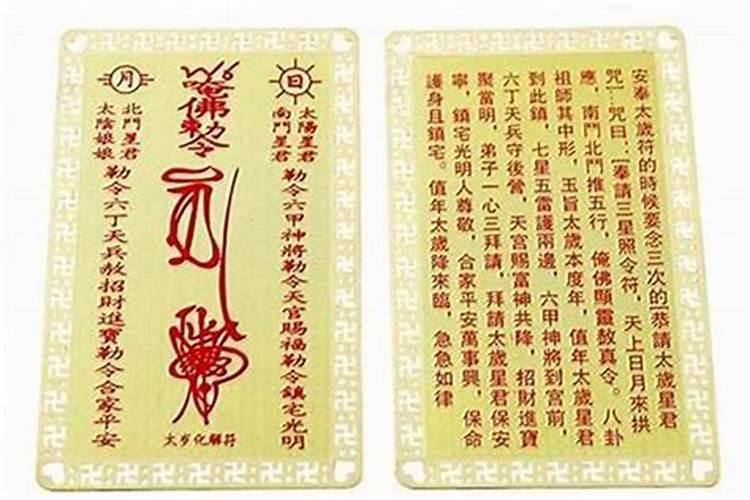 日
太陽星君
南鬥星君
勒令六甲神將勒令天官賜福勒令鎮宅光明
唵佛勅令
月
北鬥星君
太陰娘娘
勒令六丁天兵敖招財進寶勒令合家平安
太岁化解符
安奉太歲符的時候要念三次的[恭請太歲星君
咒]..咒曰:[奉請三星照令符,天上日月來拱
應,南鬥北鬥推五行,俺佛顯靈敖真令。八卦
祖師其中形,玉旨太歲本度年,值年太歲星君
到此鎮,七星五雷護兩邊,六甲神將到宮前,
六丁天兵守後營,天宮賜富神共降,招財進寶
聚當明,弟子一心三拜請,拜請太歲星君保安
寧,鎮宅光明人尊敬,合家平安萬事興,保命
護身且鎮宅。值年太歲降來臨,急急如律